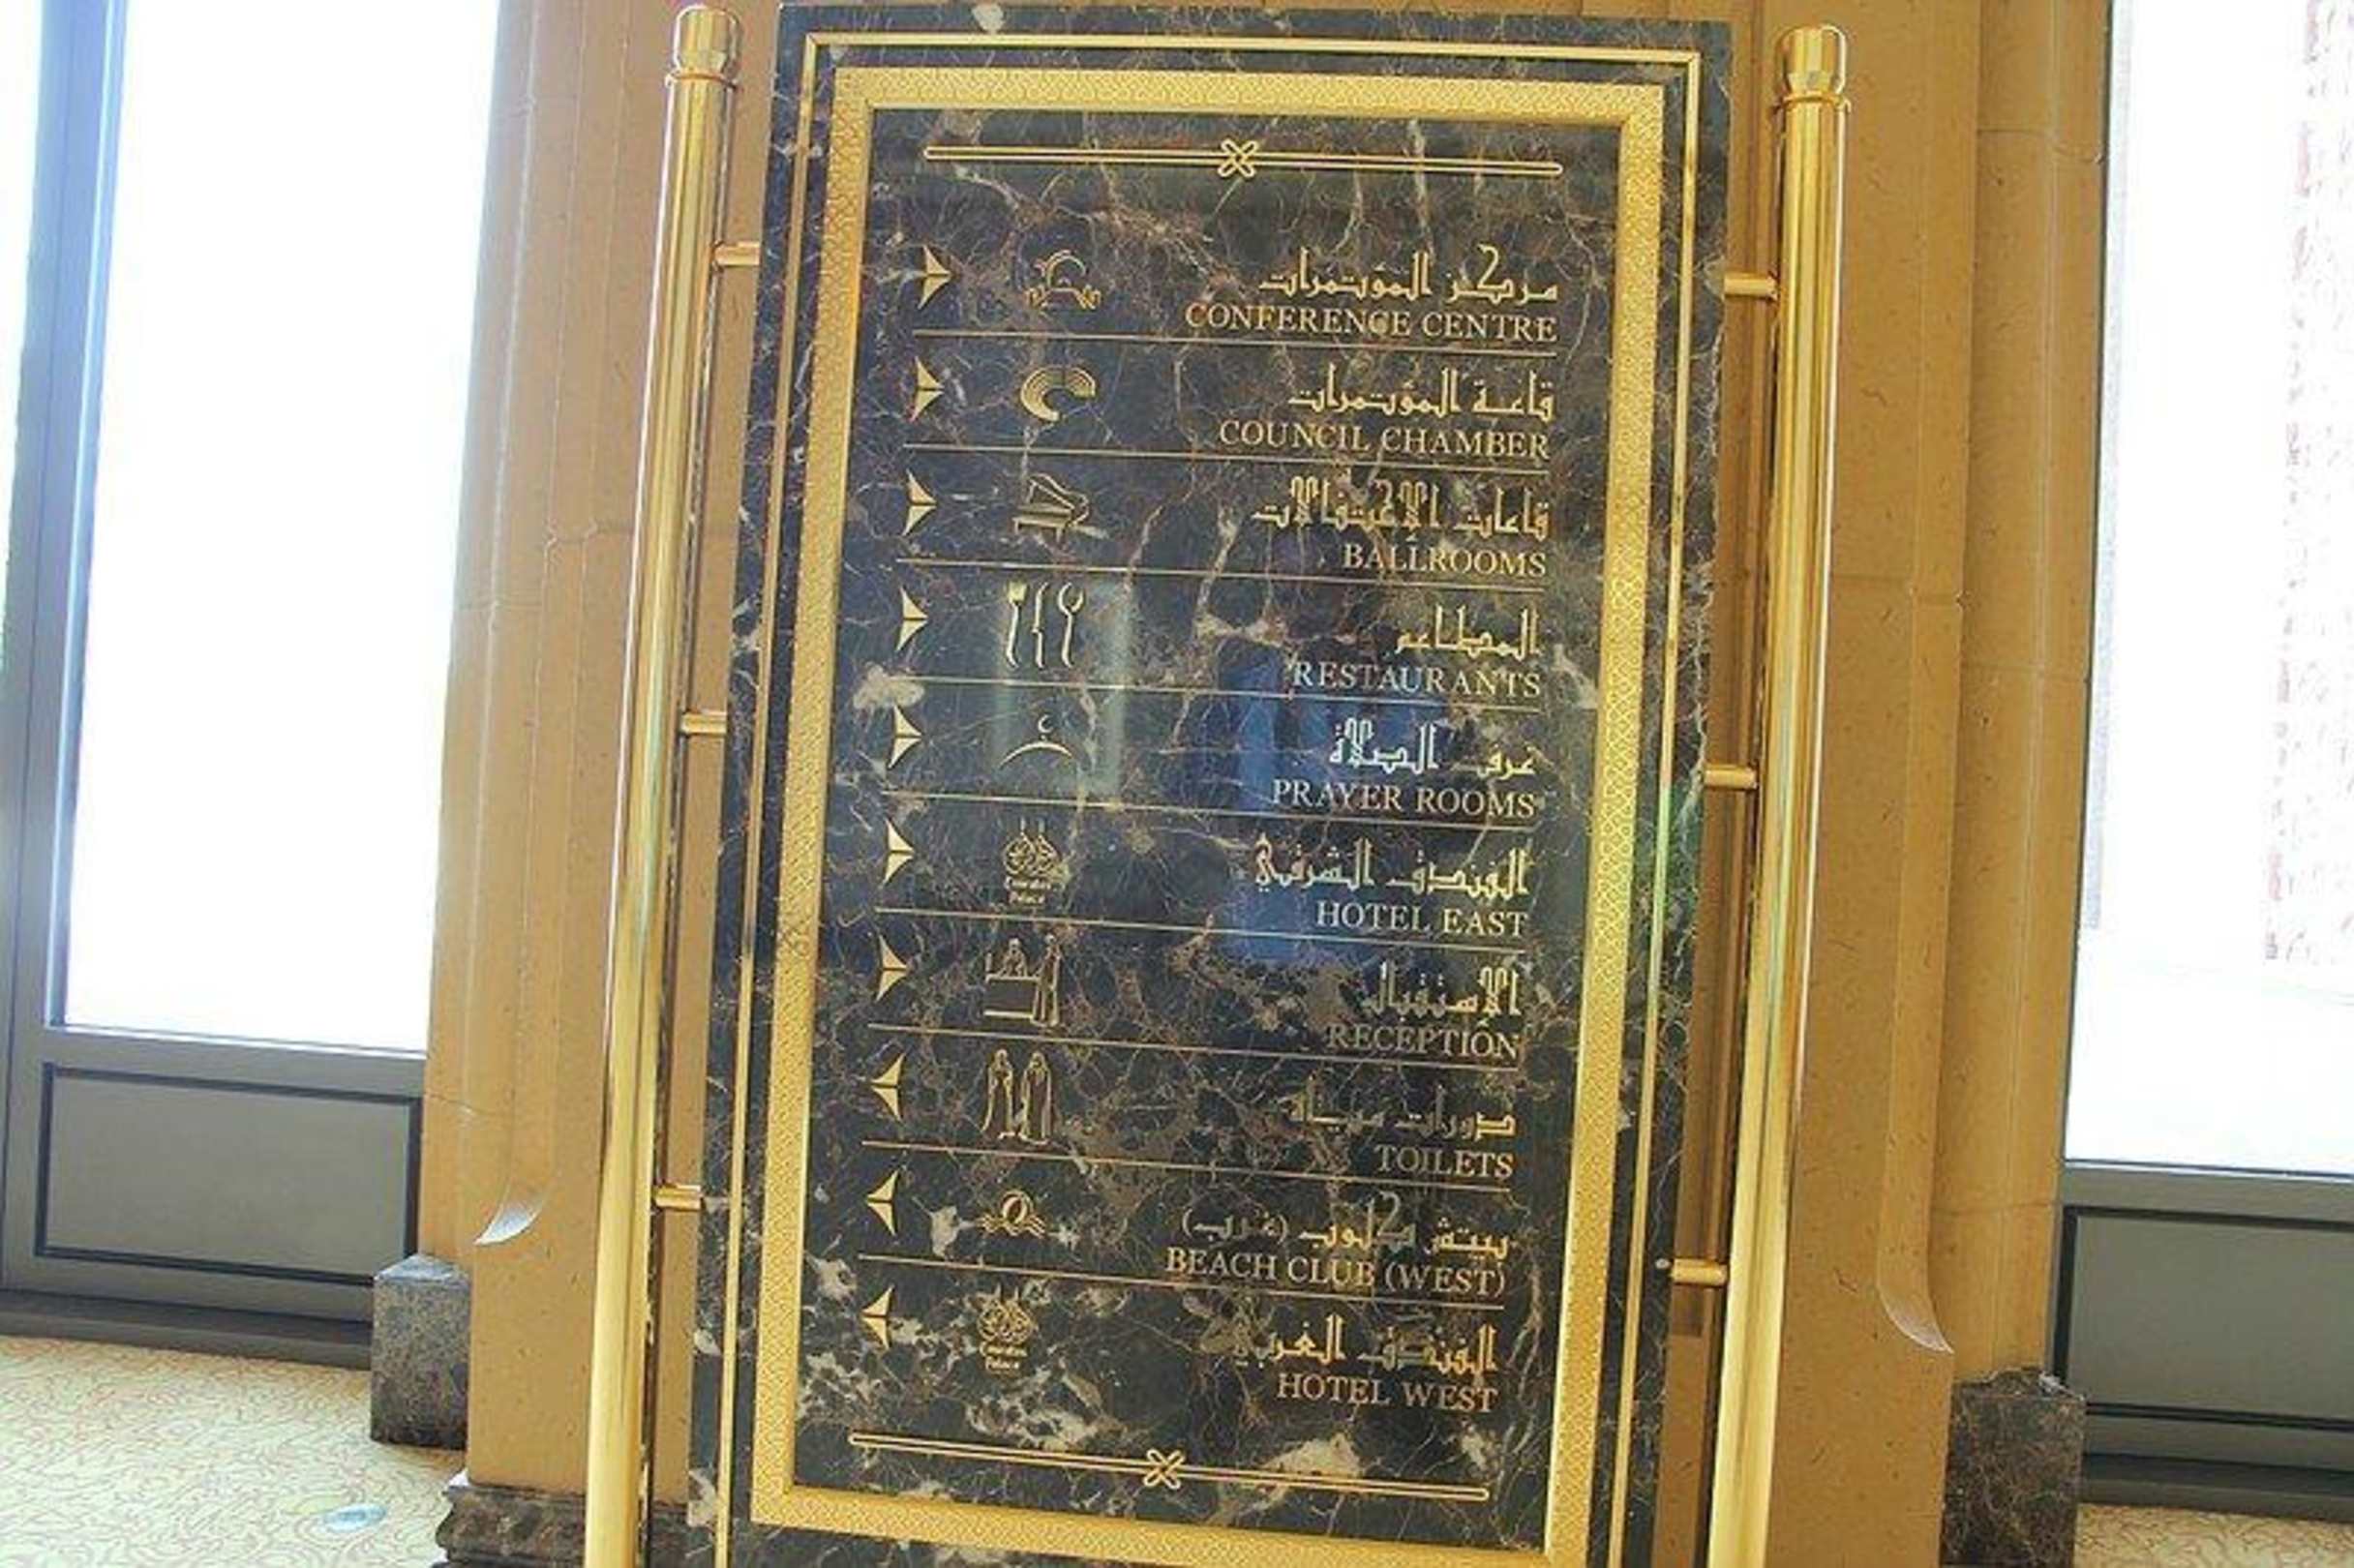 مركز المؤتمرات
CONFERENCE CENTRE
قاعة المؤتمرات
COUNCIL CHAMBER
قاعات الإحتفالات
BALLROOMS
المطاعم
RESTAURANTS
غرف الصلاة
PRAYER ROOMS
الفندق الشرقي
Emirates
Palace
HOTEL EAST
الإستقبال
RECEPTION
دورات مياه
TOILETS
بيتش كلوب (غرب)
BEACH CLUB (WEST)
الفندق الغربي
Emirates
Palace
HOTEL WEST